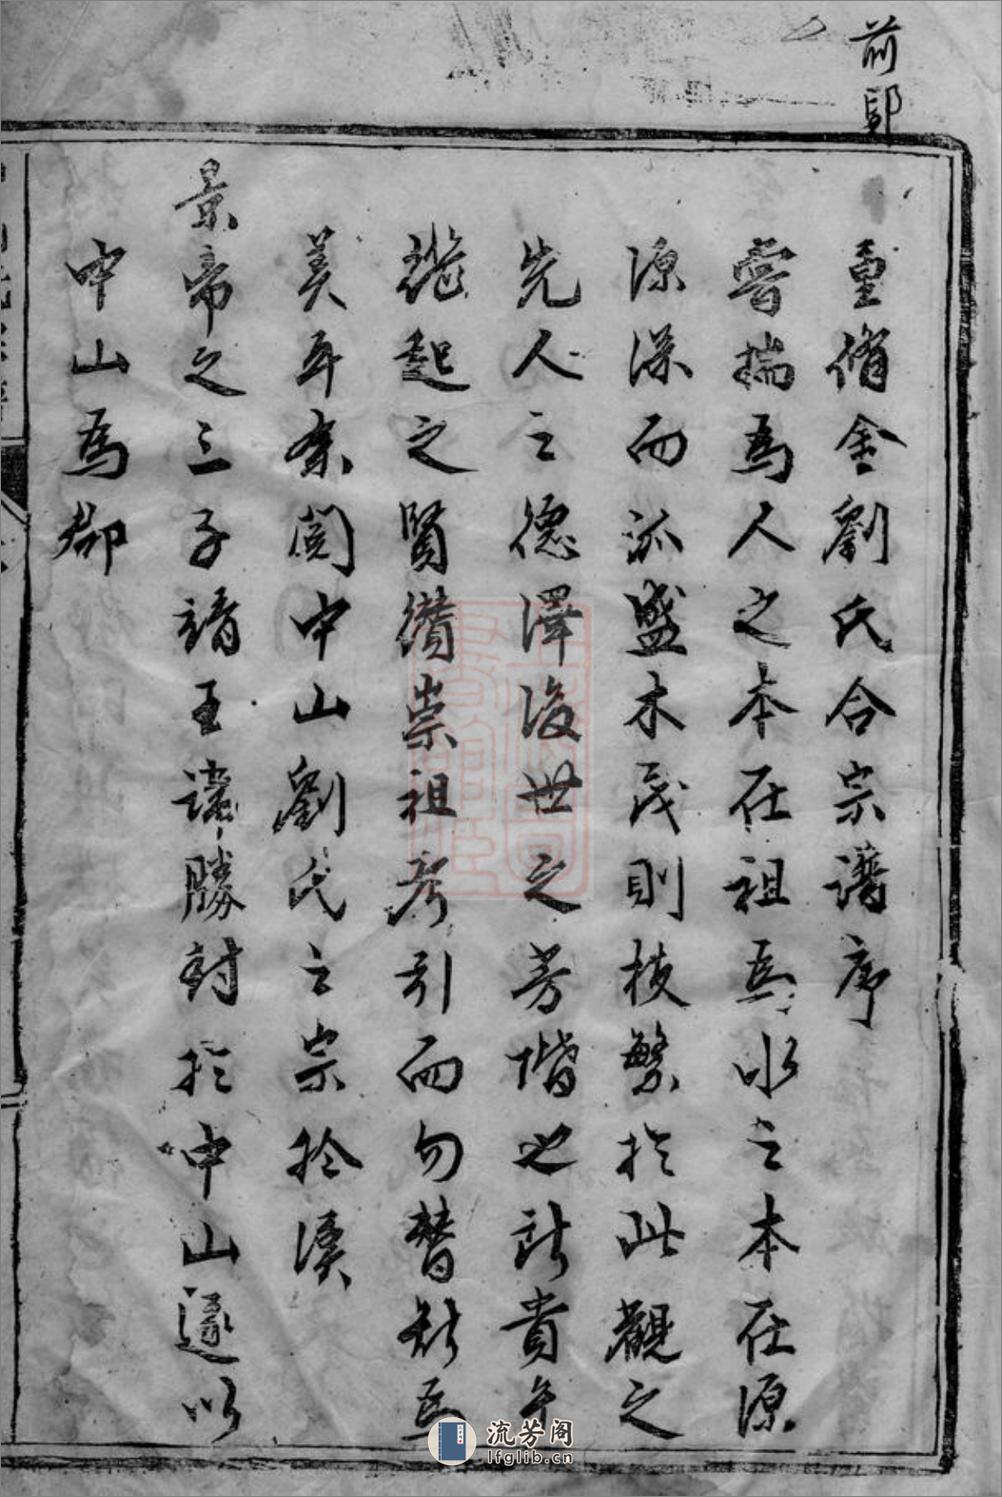 前鄖
重脩金劉氏合宗譜序
嘗揣為人之本在祖焉水之本在源
源深而派盛木茂則枝繁於此觀之
先人之德澤後世之芳階也所貴乎
繼起之賢纘崇祖考引而勿替斯為
美耳余閲中山劉氏之宗於漢
景帝之三子靖王諱勝封於中山遂以
中山為郡
流芳阁
lfglib.cn